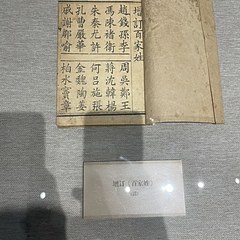 增訂百家姓
趙錢孫李 周吳鄭王
馮陳褚衛 蔣沈韓楊
朱秦尤許 何呂施張
孔曹嚴華 金魏陶姜
戚謝鄒喻 柏水竇章
增註《百家姓》